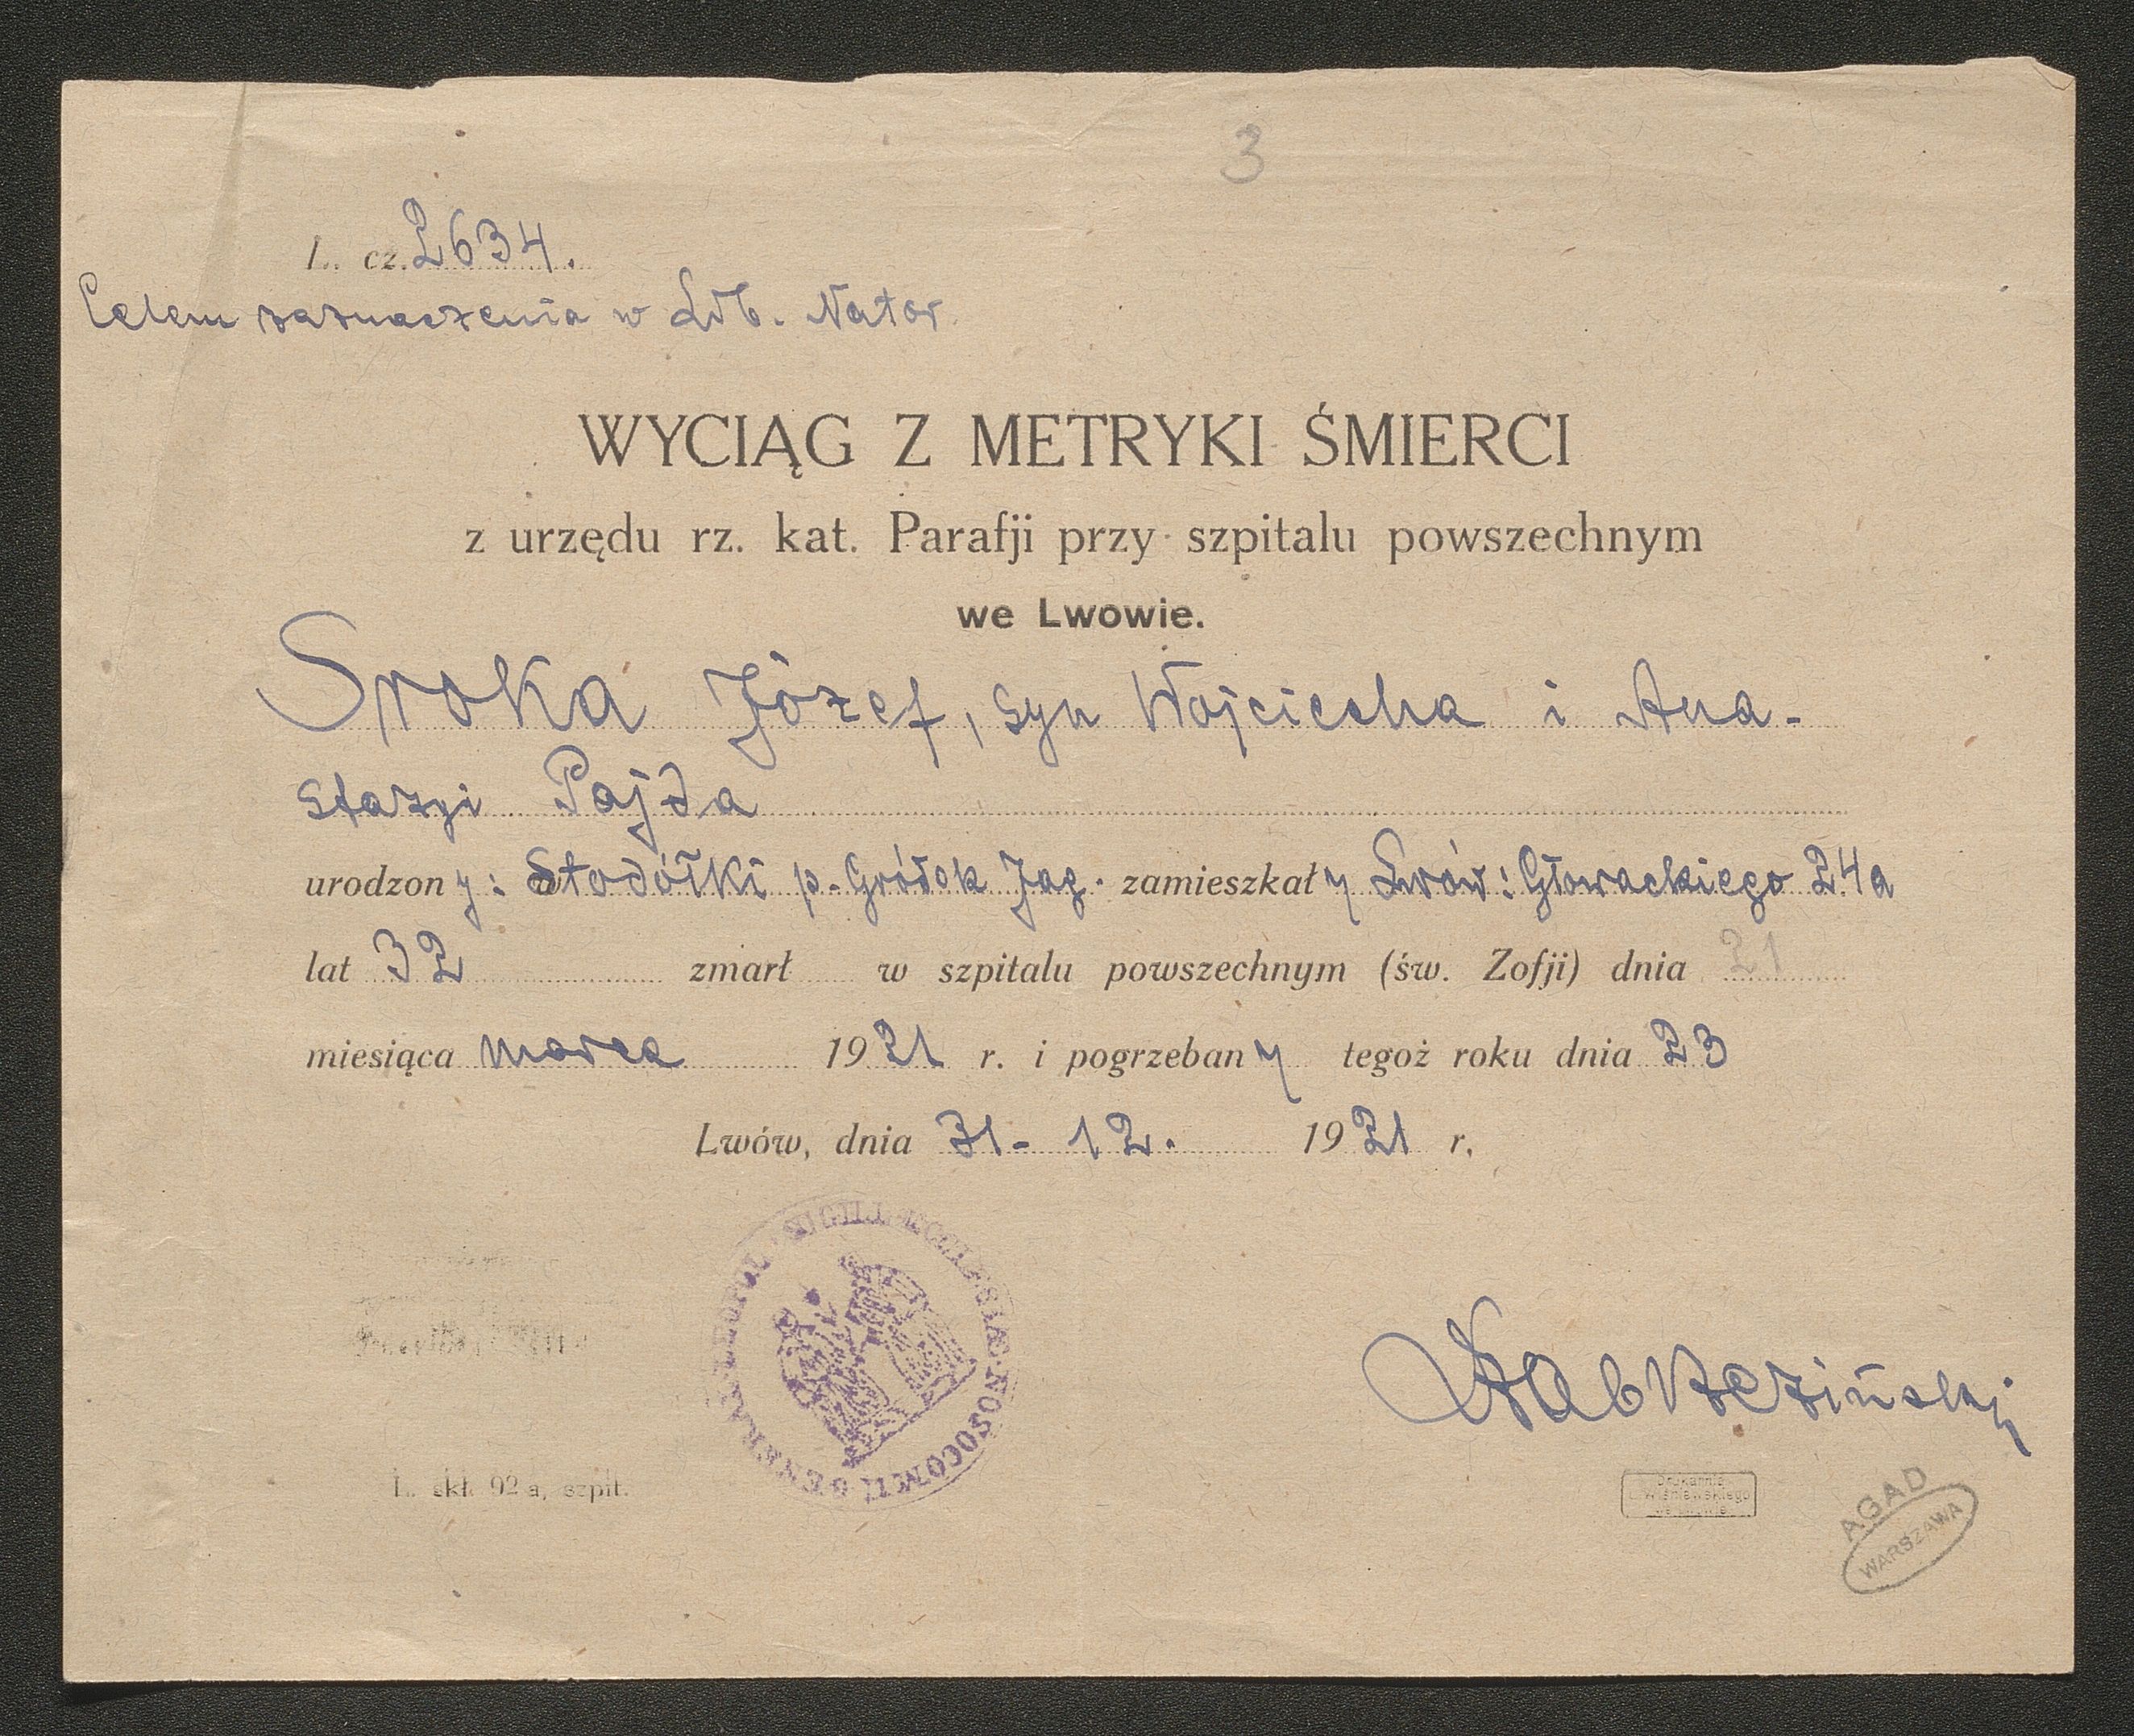 3
L. cz. 2634.
Celem zaznaczenia w Lib. Nator.
WYCIĄG Z METRYKI ŚMIERCI
z urzędu rz. kat. Parafji przy szpitalu powszechnym
we Lwowie.
Sroka Józef, syn Wojciecha i Ana-
stazyi Pajda
urodzony: Stodółki p. Gródek Jag. zamieszkały Lwów: Głowackiego 24a
lat 32 zmarł w szpitalu powszechnym (św. Zofji) dnia 21
miesiąca marca 1921 r. i pogrzebany tegoż roku dnia 23
Lwów, dnia 31-12. 1921 r.
SIGILL. ECCLESIAE NOSOCOMII GENERAL. LEOPOL.
L. skł. 92 a, szpit.
Drukarnia
Wiśniewskiego
we Lwowie
AGAD
WARSZAWA